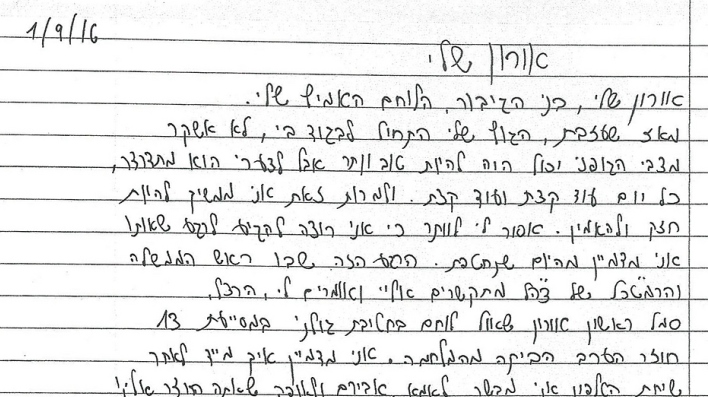 1/9/16
אורון שלי
אוורון שלי, בני הגיבור, הלוחם האמיץ שלי.
מאז שעזבת, הגוף שלי התחיל לבגוד בי, לא אשקר
מצבי הגופני יכול היה להיות טוב יותר אבל לצערי הוא מתדרדר,
כל יום עוד קצת ועוד קצת. ולמרות זאת אני ממשיך להיות
חזק ולהאמין. אסור לי לוותר כי אני רוצה להגיע לרגע שאותו
אני מדמיין מהיום שנחטפת. הרגע הזה שבו ראש הממשלה
והרמטכ"ל של צה"ל מתקשרים אליי ואומרים לי, הרצל,
סמל ראשון אוורון שאול לוחם בחטיבת גולני במסייעת 13
חוזר הערב הביתה מהמלחמה. אני מדמיין איך מייד לאחר
שיחת הטלפון אני מבשר לאמא, אבירם ולאופק שאתה חוזר אלינו